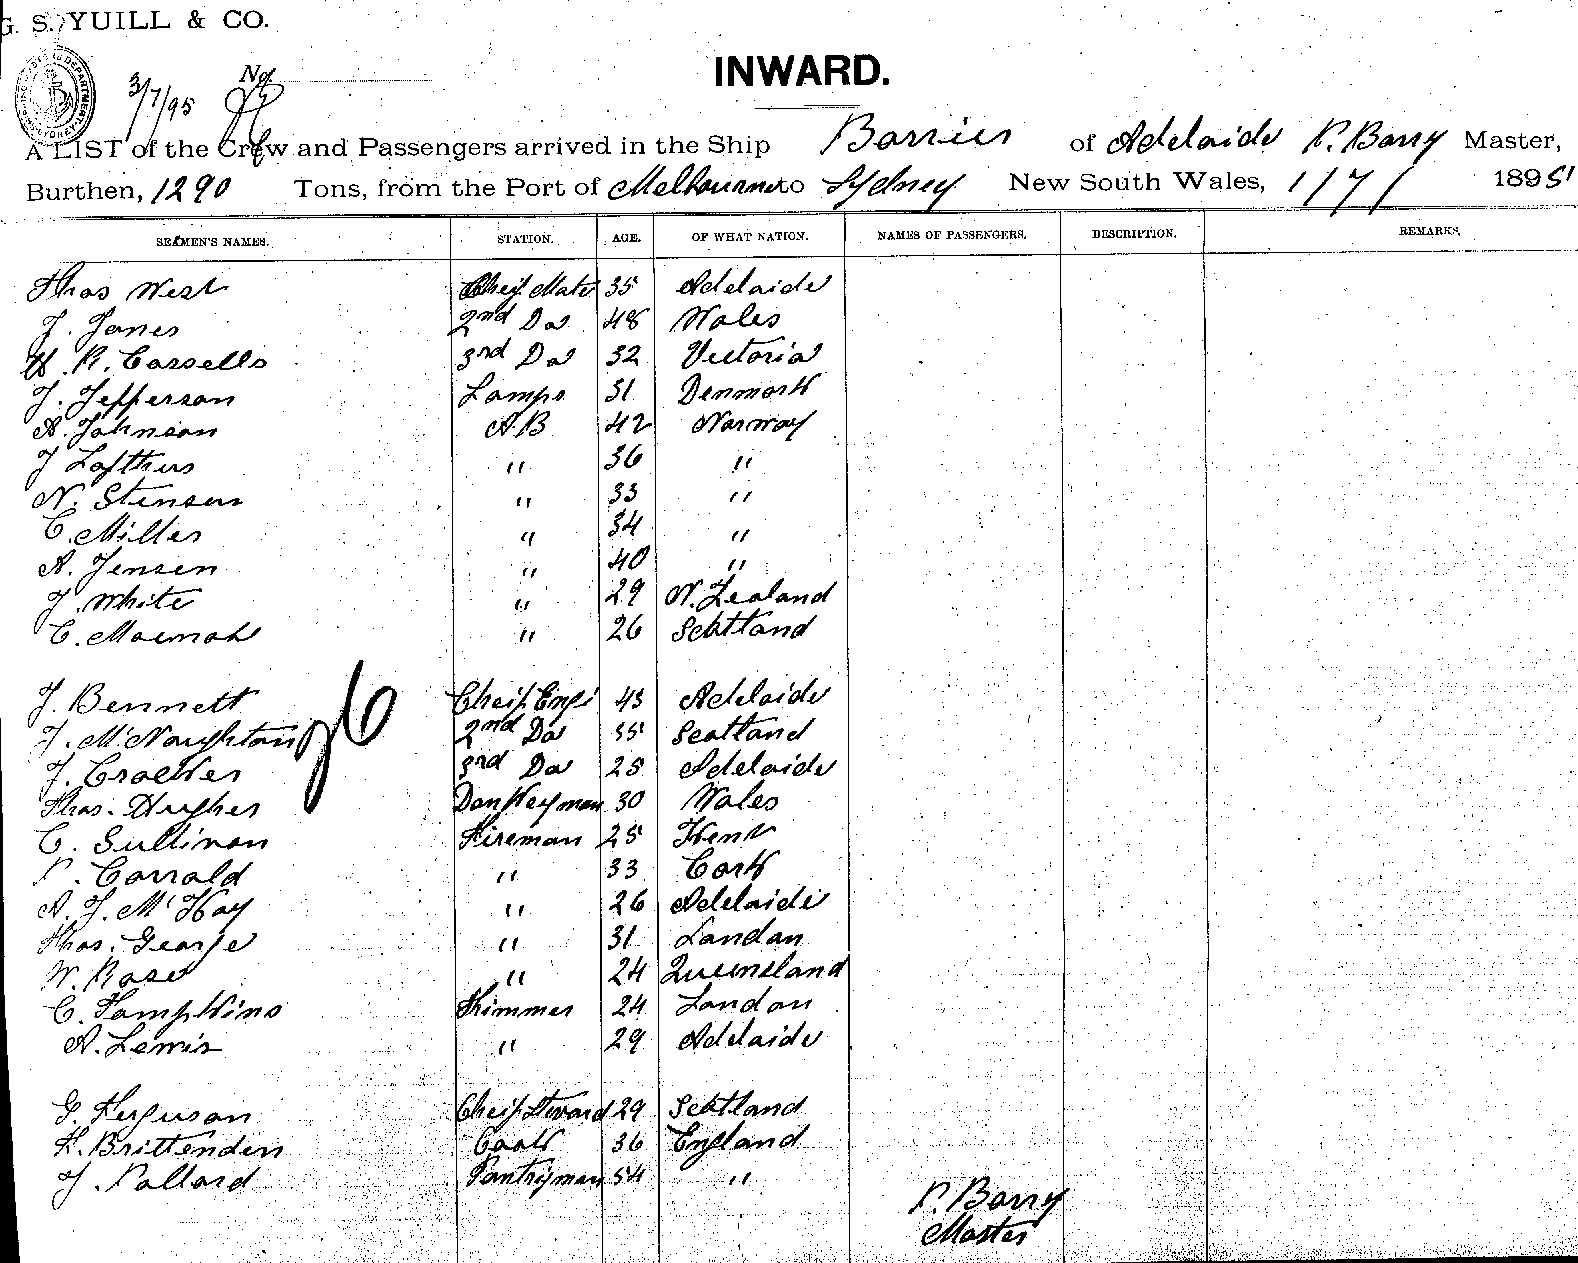 G. S. YUILL & CO.
3/7/95 No
INWARD.
A LIST of the Crew and Passengers arrived in the Ship Barrier of Adelaide P. Barry Master,
Burthen, 1290 Tons, from the Port of Melbourne to Sydney New South Wales, 1/7/ 1895
SEAMEN'S NAMES. STATION. AGE. OF WHAT NATION. NAMES OF PASSENGERS. DESCRIPTION. REMARKS.
Thos West Cheif Mate 35 Adelaide
J. Jones 2nd Do 48 Wales
R. Cassells 3rd Do 32 Victoria
J. Jefferson Lamps 31 Denmark
A. Johnson A.B 42 Norway
J Lofthus " 36 "
N. Stensen " 33 "
C. Miller " 34 "
A. Jensen " 40 "
J. White " 29 N. Zealand
C. " 26 Scotland
J. Bennett Cheif Engi 43 Adelaide
J. McNaughton 2nd Do 35 Scotland
J. Crocker 3rd Do 25 Adelaide
Thos. Hughes Donkeyman 30 Wales
C. Sullivan Fireman 25 Kent
P. Carrald " 33 Cork
A. J. McKay " 26 Adelaide
Thos. George " 31 London
W. Rose " 24 Queensland
C. Tompkins Trimmer 24 London
A. Lewis " 29 Adelaide
G. Ferguson Cheif Steward 29 Scotland
F. Brittenden Cook 36 England
J. Pollard Pantryman 54 "
P. Barry
Master